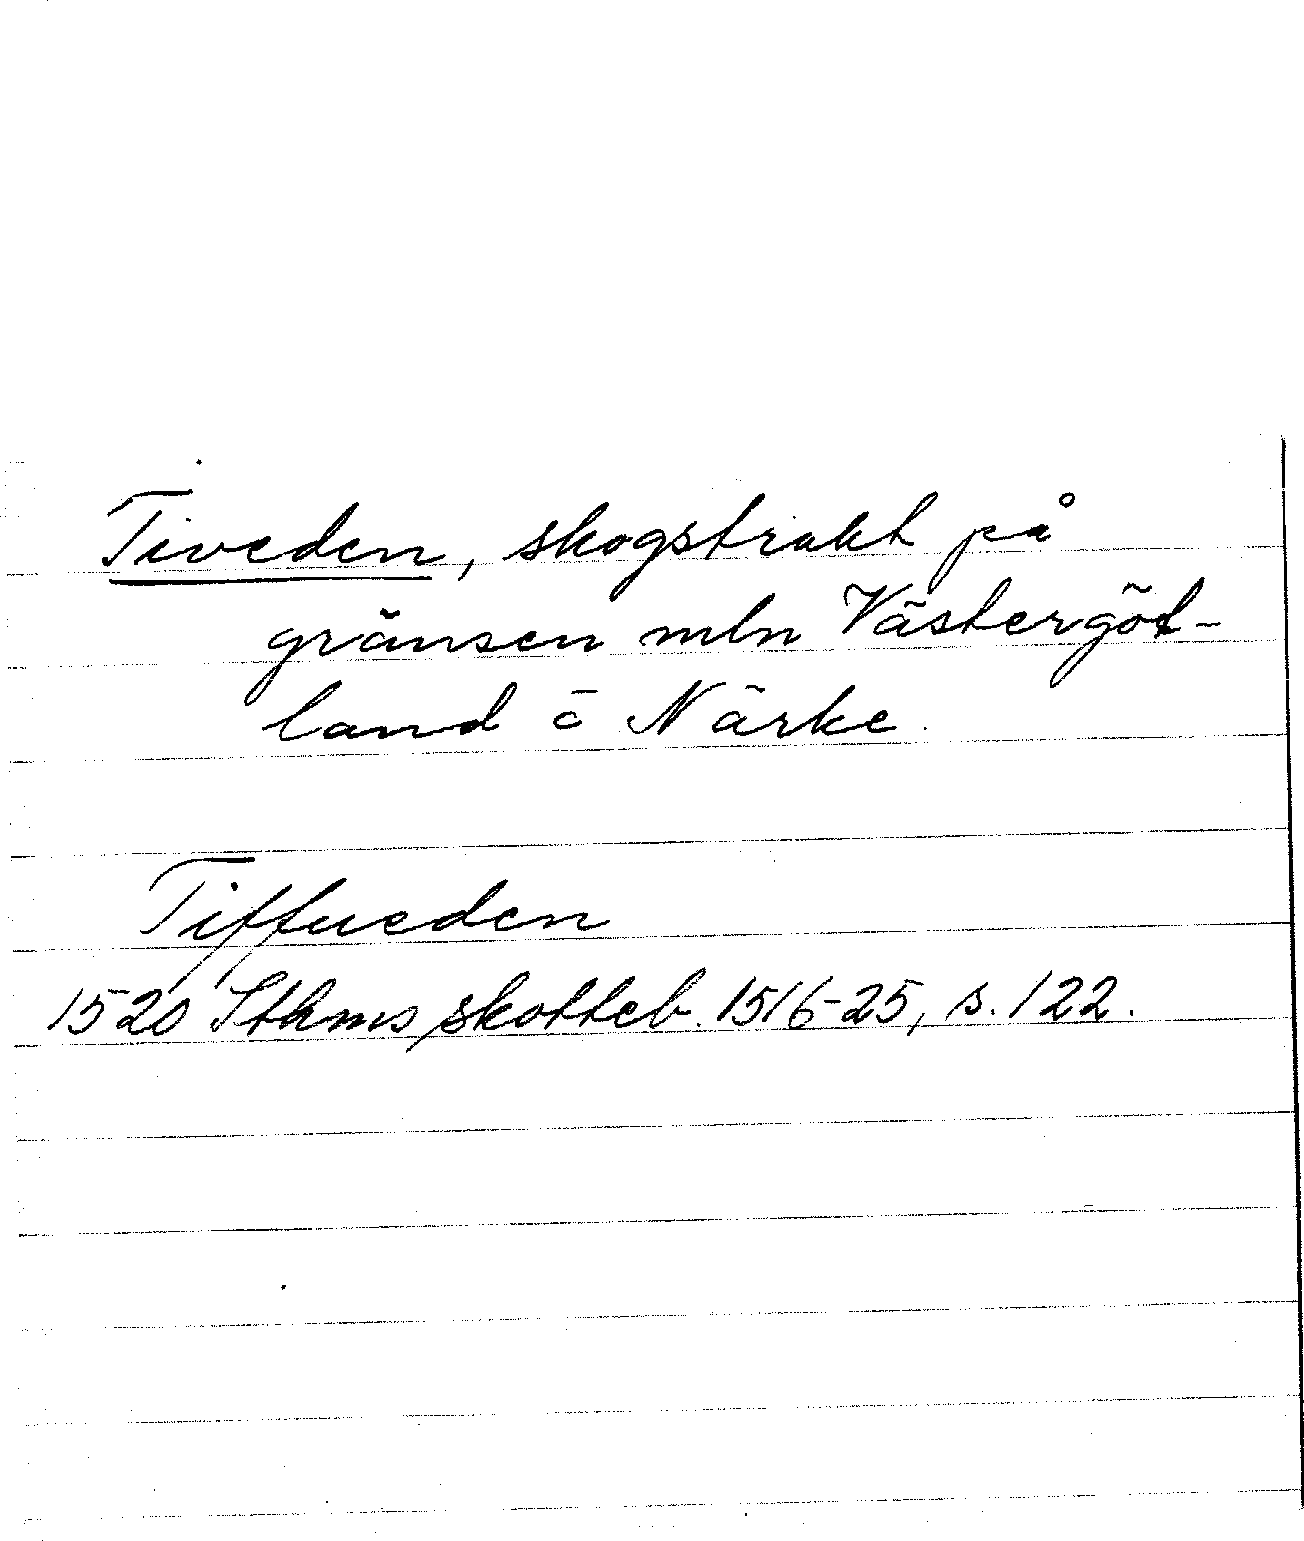 Tiveden, skogstrakt på
gränsen mln Västergöt-
land o Närke.
Tiffueden
1520 Sthms skotteb. 1516-25, s. 122.